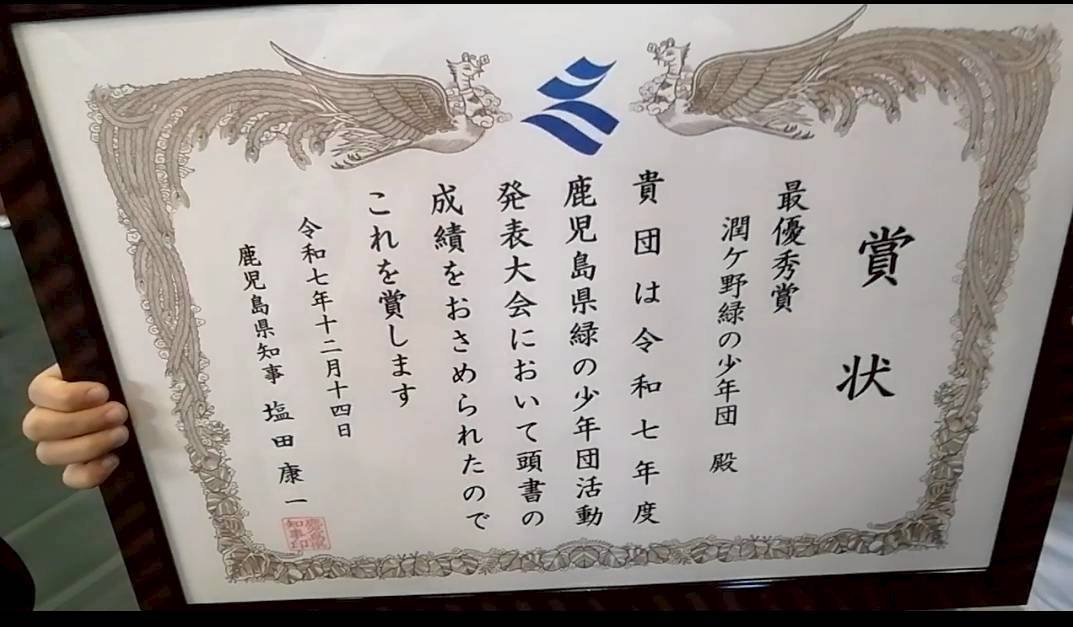 賞状
最優秀賞
潤ケ野緑の少年団 殿
貴団は令和七年度
鹿児島県緑の少年団活動
発表大会において頭書の
成績をおさめられたので
これを賞します
令和七年十二月十四日
鹿児島県知事 塩田康一